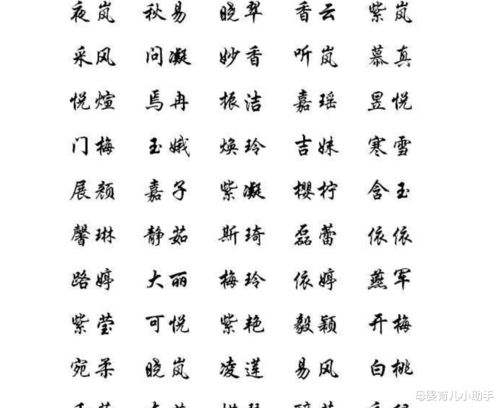 夜岚 秋易 晓翠 香云 紫岚
采风 问凝 妙香 听岚 慕真
悦煊 焉冉 振洁 嘉瑶 昱悦
门梅 玉娥 焕玲 吉妹 寒雪
展颜 嘉子 紫凝 樱柠 含玉
馨琳 静茹 斯琦 磊蕾 依依
路婷 大丽 梅玲 依婷 燕军
紫莹 可悦 紫艳 毅颖 开梅
宛柔 晓岚 凌莲 易风 白桃
母婴育儿小助手